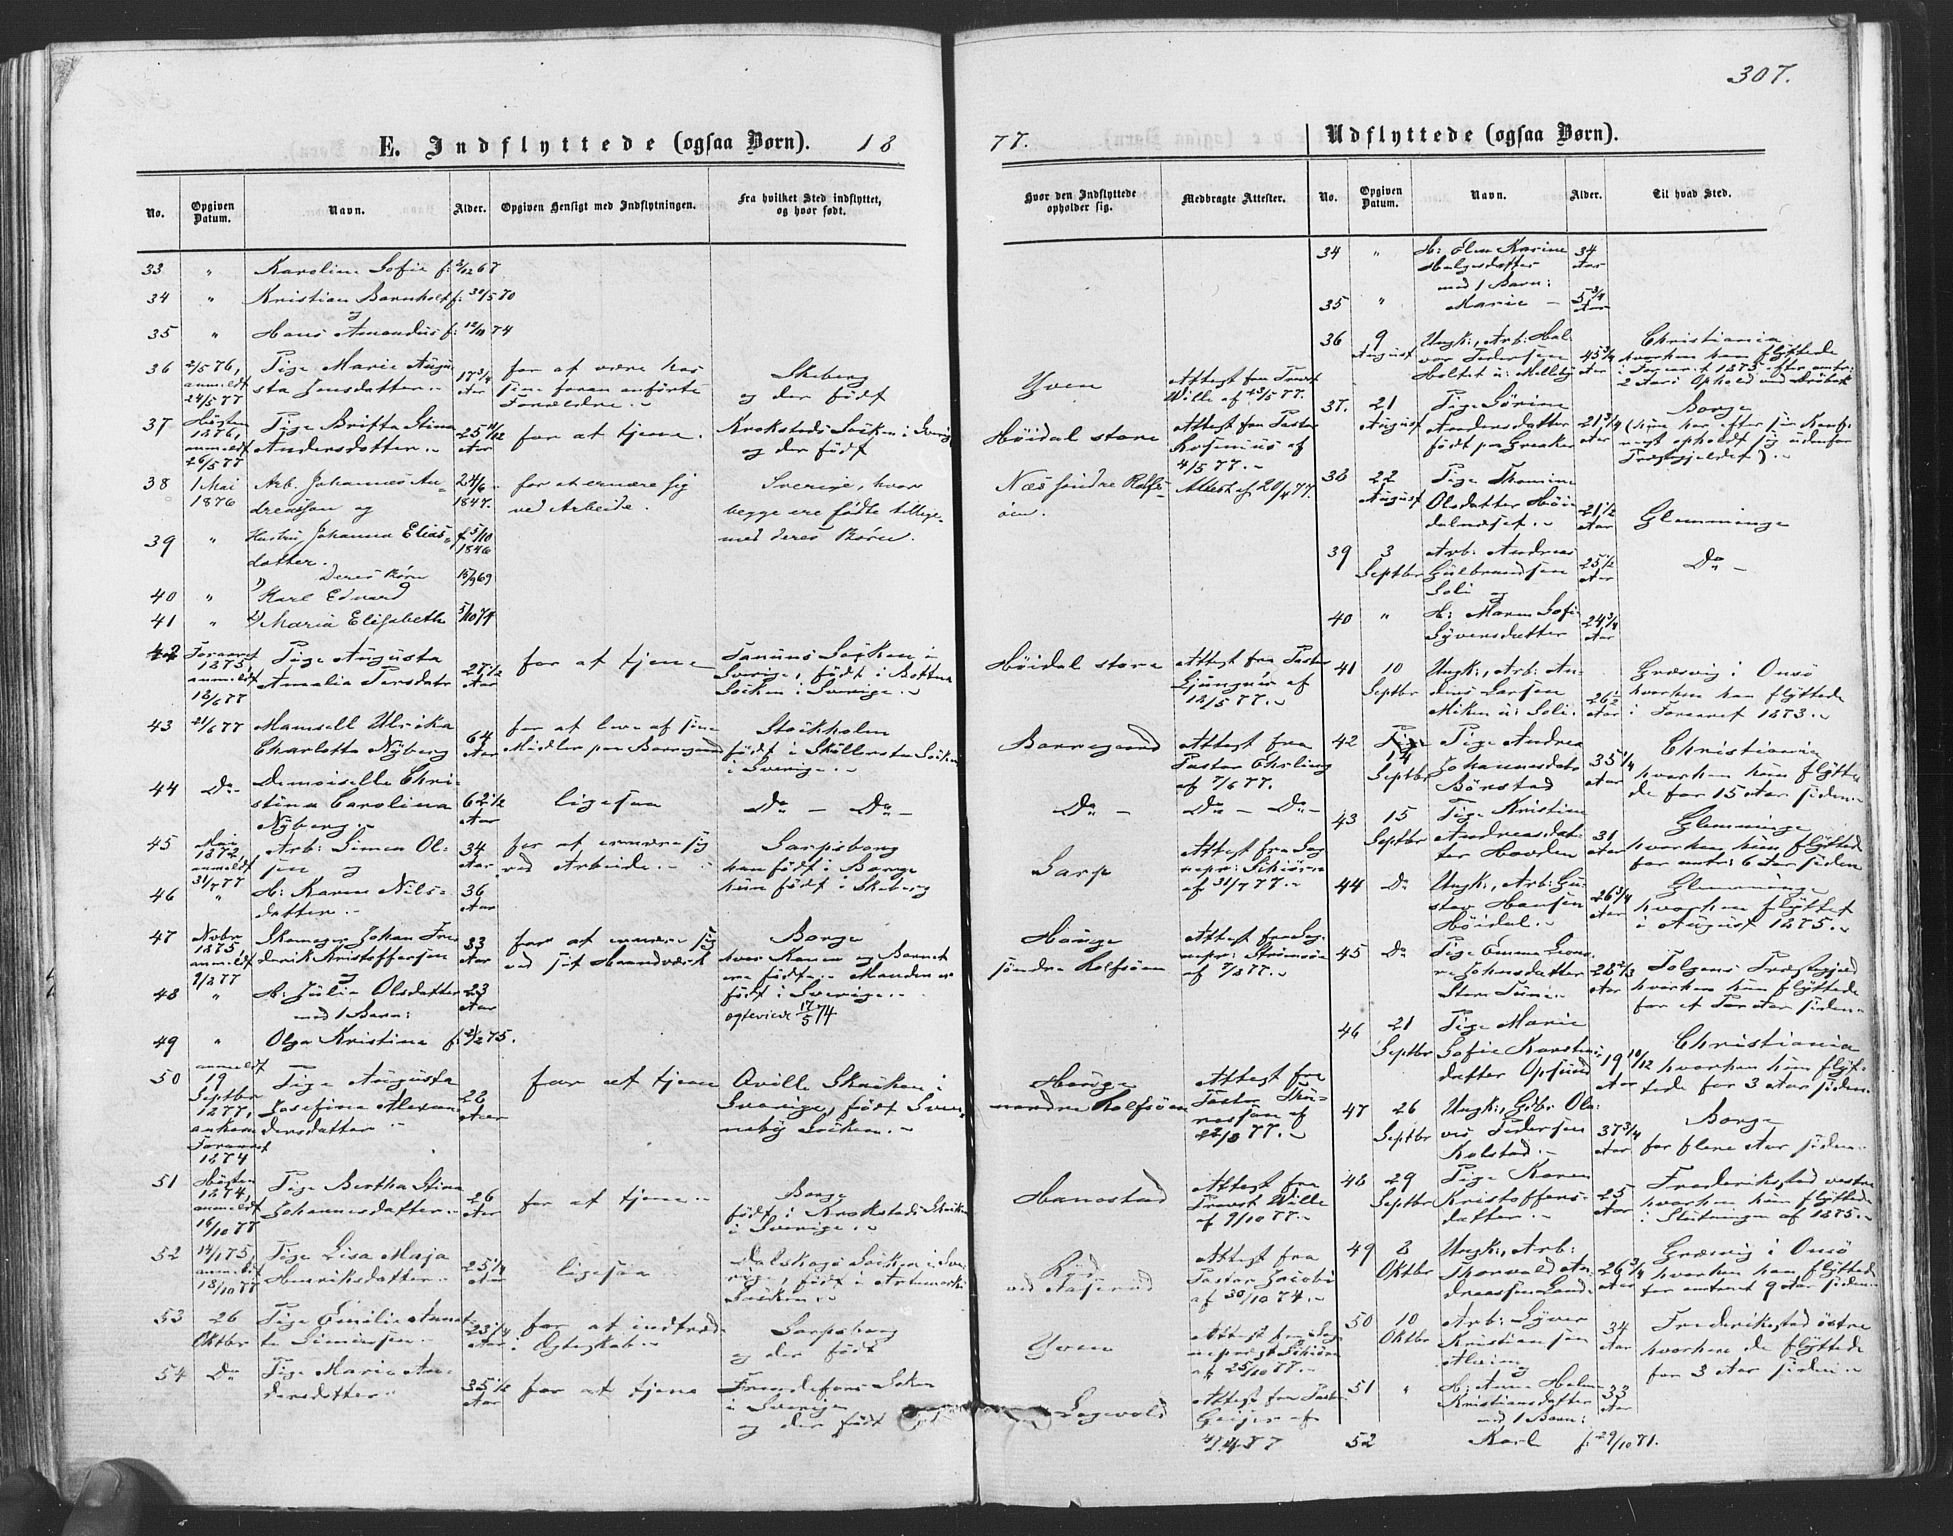 307.
E. Indflyttede (ogsaa Børn). 18
77.
Udflyttede (ogsaa Børn).
No.
Opgiven Datum.
Navn.
Alder.
Opgiven Hensigt med Indflytningen.
Fra hvilket Sted indflyttet, og hvor født.
Hvor den Indflyttede opholder sig.
Medbragte Attester.
No.
Opgiven Datum.
Navn.
Alder.
Til hvad Sted.
33 " Karoline Sofie f: 3/12 67
34 " Kristian Barnholdt f: 30/5 70
og
35 " Hans Amandus f: 12/11 74
36 2/5 76, anmeldt 24/5 77
Pige Marie Augusta Jensdatter
17 3/4 Aar
for at være hos sine foran anførte Forældre
Skeberg og der født
Yven
Attest fra Provst Wille af 23/5 77.
37 Høsten 1876, anmeldt 26/5 77
Pige Britta Stina Andersdatter
25 11/12 Aar
for at tjene
Krokstads Socken i Sverig og der født
Høidal store
Attest fra Pastor Rosenius af 4/5 77.
38 1 Mai 1876
Arb. Johannes Andreasson og
24/6 1847.
for at ernære sig ved Arbeide.
Sverige, hvor begge ere fødte tillige med deres Børn.
Næs søndre Rolfsøen.
Attest af 20/4 77.
39 " Hustru Johanna Eliasdatter.
f. 5/10 1846
Deres Børn
40 " 1) Karl Edvard
15/9 69
41 " 2) Maria Elisabeth
5/10 74
42 Foraaret 1875, anmeldt 13/6 77
Pige Augusta Amalia Persdatr
27 1/2 Aar
for at tjene
Tanums Socken i Sverige, født i Bottna Socken i Sverige.
Høidal store
Attest fra Pastor Ljungner af 12/5 77.
43 21/6 77
Mamsell Ulrika Charlotta Nyberg
64 Aar
for at leve af sine Midler paa Borregaard
Stockholm født i Skillersta Socken i Sverige.
Borregaard
Attest fra Pastor Ehrling af 7/6 77.
44 Do
Demoiselle Christina Carolina Nyberg
62 1/2 Aar
ligesaa
Do - Do -
Do -
Do - Do -
45 Mai 1872 anmeldt 31/7 77
Arb: Simen Olsen og
34 Aar
for at ernære sig ved Arbeide
Sarpsborg han født i Borge hun født i Skeberg
Sarp
Attest fra Sognepr: Schiørn af 31/7 77.
46 " H: Karen Nilsdatter
36 Aar
47 Novbr 1875, anmeldt 9/8 77
Skomager Johan Frederik Kristoffersen og
33 Aar
for at ernære sig ved sit Haandværk
Borge hvor Konen og Barnet ere fødte. Manden er født i Sverige.
ogteviede 17/5 74
Hauge søndre Rolfsøen
Attest fra Sognepr: Strømsøe af 7/8 77.
48 " H: Julie Olsdatter med 1 Barn:
23 Aar
49 " Olga Kristina f: 21/2 75.
50 anmeldt 19 Septbr 1877, ankom Foraaret 1874
Pige Augusta Josefina Alexandersdatter
28 Aar
for at tjene
Qville Socken i Sverige, født Svenneby Socken.
Hauge nordre Rolfsøen
Attest fra Pastor af 22/8 77.
51 Høsten 1874, anmeldt 16/10 77
Pige Bertha Stina Johannesdatter
26 Aar
for at tjene
Borge født i Krokstads Socken i Sverige.
Hanestad
Attest fra Provst Wille af 9/10 77.
52 14/1 75, anmeldt 18/10 77
Pige Lisa Maja Henriksdatter
25 1/4 Aar
ligesaa
Dalskogs Socken i Sverige, født i Artemark Socken.
Ryd ved Aaserud
Attest fra Pastor Jacobi af 30/10 74.
53 26 Oktbr
Pige Emilie Annette Simensen
23 1/4 Aar
for at indtræde i Ogteskab
Sarpsborg og der født
Yven
Attest fra Sognepræst Schiørn af 25/10 77.
54 Do
Pige Marie Andersdatter
35 1/2 Aar
for at tjene
Fundefors Soken i Sverige og der født
Lögevold
Attest fra Pastor Geijer af 4/4 77
34 " H: Elen Karine Helgesdatter med 1 Barn:
34 Aar
35 " Marie - 5 3/4 Aar
36 9 August
Ungk:, Arb: Halvor Pedersen Holtet u: Melleby
45 3/4 Aar
Christiania hvorhen han flyttede i Foraaret 1875 efter omtr: 2 Aars Ophold ved Drøbak
37. 21 August
Pige Sørine Andersdatter født paa Greaker
21 3/4 Aar
Borge (hun har efter sin Konf: nogt opholdt sig udenfor Præstegjeldet).
38 22 August
Pige Thomine Olsdatter Høidalnæset.
21 1/2 Aar
Glemminge
39 3 Septbr
Arb: Andreas Gulbrandsen Soli og
25 1/2 Aar
Do -
40 " H: Maren Sofie Syversdatter
24 3/4 Aar
41 10 Septbr
Ungk:, Arb: Andius Larsen Miken u: Soli.
26 1/2 Aar
Græsvig i Onsø hvorhen han flyttede i Foraaret 1873.
42 14 Septbr
Pige Andrea Johannesdatr Børstad
35 1/4 Aar
Christiania hvorhen hun flyttede for 15 Aar siden
43 15 Septbr
Pige Kristine Andreasdatter Hovden
31 Aar
Glemminge hvorhen hun flyttede for omtr: 6 Aar siden
44 Do
Ungk:, Arb: Gustav Hansen Høidal.
26 3/4 Aar
Glemminge hvorhen flyttet i August 1875.
45 Do
Pige Emma Johnsdatter Store Tune
28 2/3 Aar
Tolgens Præstegjeld hvorhen hun flyttede for et Par Aar siden
46 21 Septbr
Pige Marie Sofie Karstensdatter Opsund
19 10/12 Aar
Christiania hvorhen hun flyttede for 3 Aar siden
47 26 Septbr
Ungk:, Gbr: Olavis Pedersen Kolstad.
37 3/4 Aar
Borge for flere Aar siden
48 29 Septbr
Pige Karen Kristoffersdatter.
25 Aar
Frederikstad vestre hvorhen hun flyttede i Slutningen af 1875.
49 8 Oktbr
Ungk:, Arb: Thorvald Andreassen Lande
26 3/4 Aar
Græsvig i Onsø hvorhen han flyttede for omtrent 9 Aar siden
50 10 Oktbr
Arb: Syver Kristiansen Alvim og
34 Aar
Frederikstad østre hvorhen de flyttede for 3 Aar siden
51 " H: Anne Helene Kristiansdatter med 1 Barn:
33 Aar
52 Karl f: 29/10 71.